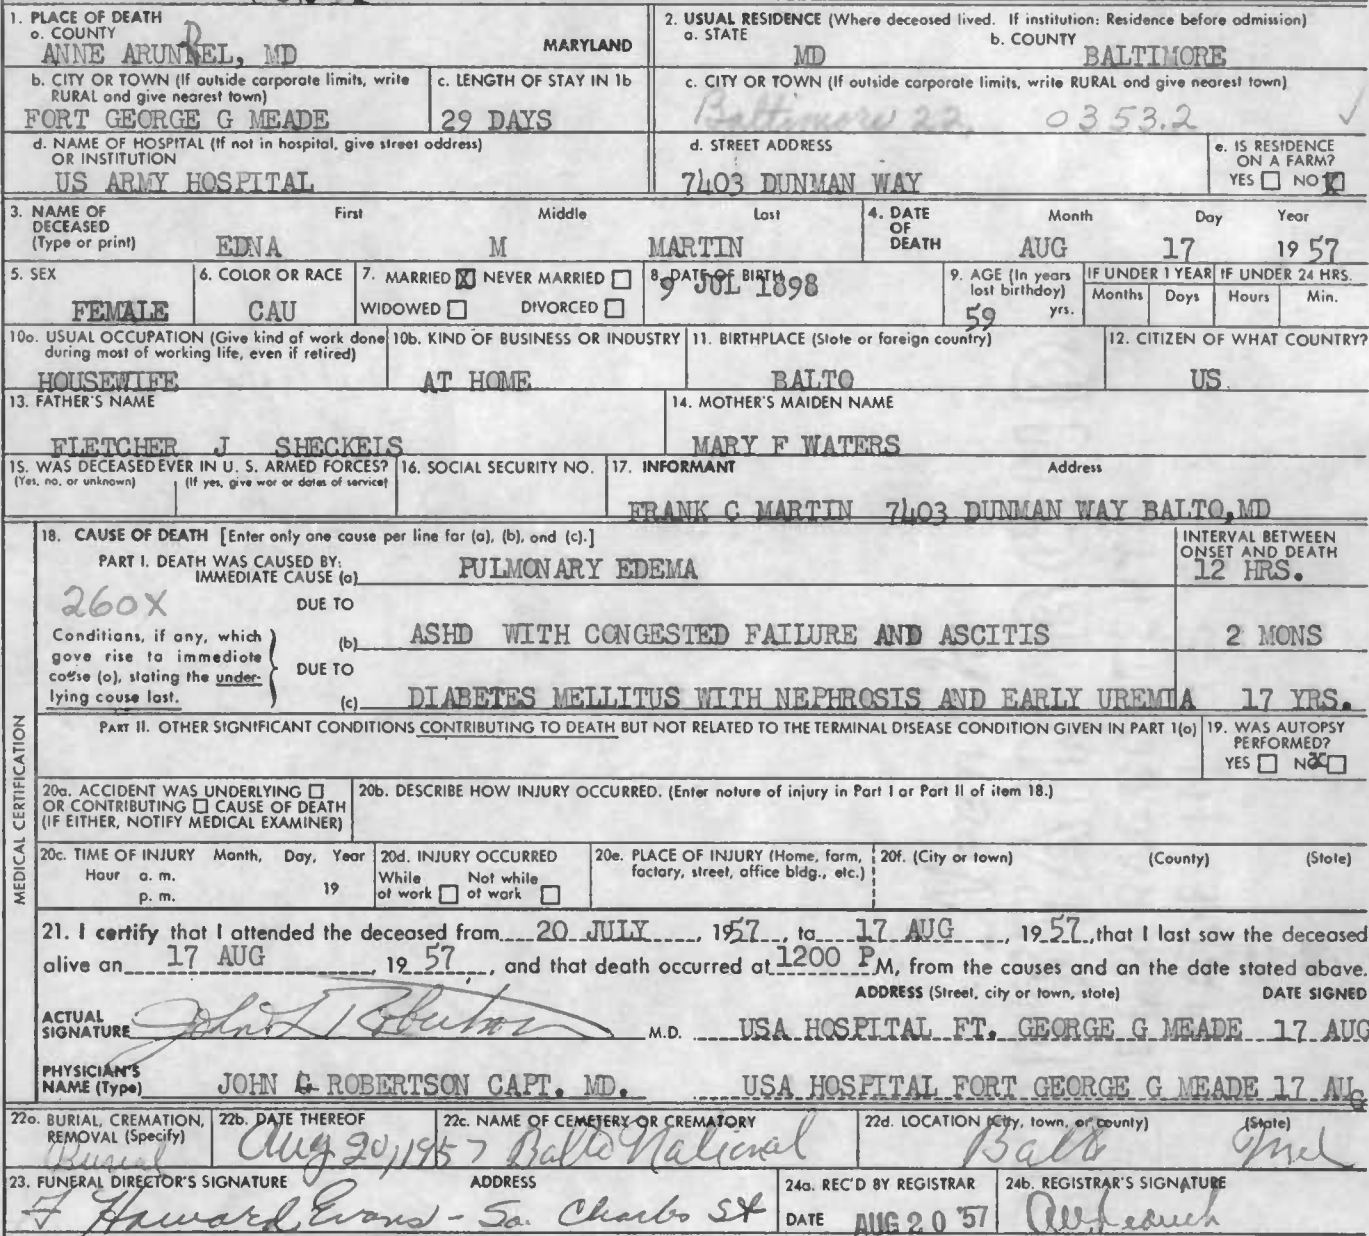 1. PLACE OF DEATH
a. COUNTY
ANNE ARUNDEL, MD MARYLAND
2. USUAL RESIDENCE (Where deceased lived. If institution: Residence before admission)
a. STATE b. COUNTY
MD BALTIMORE
b. CITY OR TOWN (If outside corporate limits, write RURAL and give nearest town)
FORT GEORGE G MEADE
c. LENGTH OF STAY IN 1b
29 DAYS
c. CITY OR TOWN (If outside corporate limits, write RURAL and give nearest town)
Baltimore 22, 0353.2 ✓
d. NAME OF HOSPITAL (If not in hospital, give street address)
OR INSTITUTION
US ARMY HOSPITAL
d. STREET ADDRESS
7403 DUNMAN WAY
e. IS RESIDENCE
ON A FARM?
YES NO X
3. NAME OF
DECEASED
(Type or print)
First Middle Last
EDNA M MARTIN
4. DATE
OF
DEATH
Month Day Year
AUG 17 19 57
5. SEX
FEMALE
6. COLOR OR RACE
CAU
7. MARRIED X NEVER MARRIED
WIDOWED DIVORCED
8. DATE OF BIRTH
9 JUL 1898
9. AGE (In years
last birthday)
59 yrs.
IF UNDER 1 YEAR
Months Days
IF UNDER 24 HRS.
Hours Min.
10a. USUAL OCCUPATION (Give kind of work done
during most of working life, even if retired)
HOUSEWIFE
10b. KIND OF BUSINESS OR INDUSTRY
AT HOME
11. BIRTHPLACE (State or foreign country)
BALTO
12. CITIZEN OF WHAT COUNTRY?
US
13. FATHER'S NAME
FLETCHER J SHECKEIS
14. MOTHER'S MAIDEN NAME
MARY F WATERS
15. WAS DECEASED EVER IN U. S. ARMED FORCES?
(Yes, no, or unknown) (If yes, give war or dates of service)
16. SOCIAL SECURITY NO.
17. INFORMANT Address
FRANK C MARTIN 7403 DUNMAN WAY BALTO,MD
MEDICAL CERTIFICATION
18. CAUSE OF DEATH [Enter only one cause per line for (a), (b), and (c).]
INTERVAL BETWEEN
ONSET AND DEATH
PART I. DEATH WAS CAUSED BY:
IMMEDIATE CAUSE (a) PULMONARY EDEMA 12 HRS.
260X DUE TO
Conditions, if any, which
gave rise to immediate
cause (a), stating the under-
lying cause last.
(b) ASHD WITH CONGESTED FAILURE AND ASCITIS 2 MONS
DUE TO
(c) DIABETES MELLITUS WITH NEPHROSIS AND EARLY UREMIA 17 YRS.
PART II. OTHER SIGNIFICANT CONDITIONS CONTRIBUTING TO DEATH BUT NOT RELATED TO THE TERMINAL DISEASE CONDITION GIVEN IN PART 1(a)
19. WAS AUTOPSY
PERFORMED?
YES NO X
20a. ACCIDENT WAS UNDERLYING
OR CONTRIBUTING CAUSE OF DEATH
(IF EITHER, NOTIFY MEDICAL EXAMINER)
20b. DESCRIBE HOW INJURY OCCURRED. (Enter nature of injury in Part I or Part II of item 18.)
20c. TIME OF INJURY Month, Day, Year
Hour a. m.
p. m. 19
20d. INJURY OCCURRED
While Not while
at work at work
20e. PLACE OF INJURY (Home, farm,
factory, street, office bldg., etc.)
20f. (City or town) (County) (State)
21. I certify that I attended the deceased from 20 JULY, 1957, to 17 AUG, 19 57, that I last saw the deceased
alive on 17 AUG, 19 57, and that death occurred at 1200 P M, from the causes and on the date stated above.
ADDRESS (Street, city or town, state) DATE SIGNED
ACTUAL
SIGNATURE John L Robertson M.D. USA HOSPITAL FT. GEORGE G MEADE 17 AUG
PHYSICIAN'S
NAME (Type) JOHN G ROBERTSON CAPT. MD. USA HOSPITAL FORT GEORGE G MEADE 17 AUG
22a. BURIAL, CREMATION,
REMOVAL (Specify)
Burial
22b. DATE THEREOF
Aug 20, 1957
22c. NAME OF CEMETERY OR CREMATORY
Balto National
22d. LOCATION (City, town, or county) (State)
Balto Md
23. FUNERAL DIRECTOR'S SIGNATURE ADDRESS
F Howard Evans - So. Charles St
24a. REC'D BY REGISTRAR
DATE AUG 20 '57
24b. REGISTRAR'S SIGNATURE